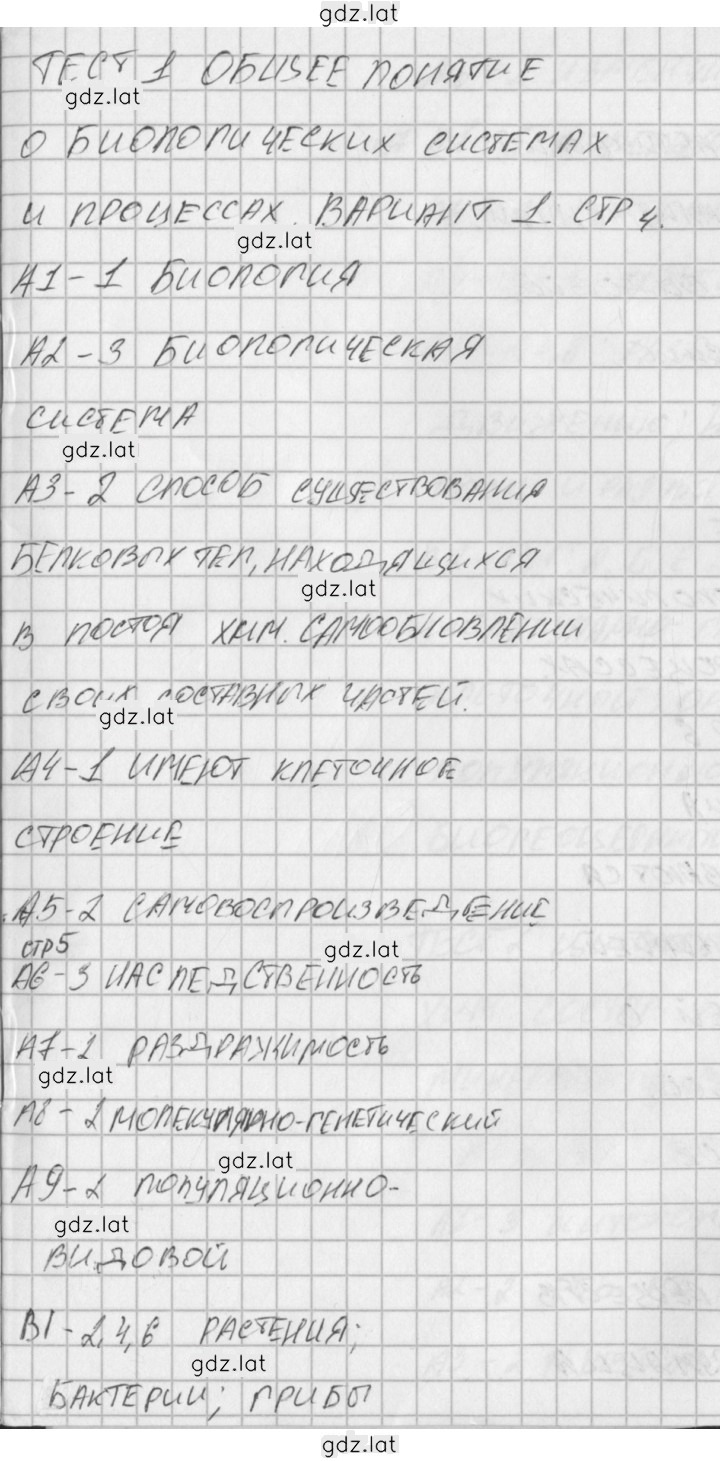 gdz.lat
ТЕСТ 1 ОБЩЕЕ ПОНЯТИЕ
gdz.lat
О БИОЛОГИЧЕСКИХ СИСТЕМАХ
И ПРОЦЕССАХ. ВАРИАНТ 1. СТР 4.
gdz.lat
А1-1 БИОЛОГИЯ
А2-3 БИОЛОГИЧЕСКАЯ
СИСТЕМА
gdz.lat
А3-2 СПОСОБ СУЩЕСТВОВАНИЯ
БЕЛКОВЫХ ТЕЛ, НАХОДЯЩИХСЯ
gdz.lat
В ПОСТОЯ ХИМ. САМООБНОВЛЕНИИ
СВОИХ СОСТАВНЫХ ЧАСТЕЙ.
gdz.lat
А4-1 ИМЕЮТ КЛЕТОЧНОЕ
СТРОЕНИЕ
А5-2 САМОВОСПРОИЗВЕДЕНИЕ
СТР 5
gdz.lat
А6-3 НАСЛЕДСТВЕННОСТЬ
А7-1 РАЗДРАЖИМОСТЬ
gdz.lat
А8-2 МОЛЕКУЛЯРНО-ГЕНЕТИЧЕСКИЙ
gdz.lat
А9-2 ПОПУЛЯЦИОННО-
gdz.lat
ВИДОВОЙ
В1-2,4,6 РАСТЕНИЯ;
gdz.lat
БАКТЕРИИ; ГРИБЫ
gdz.lat